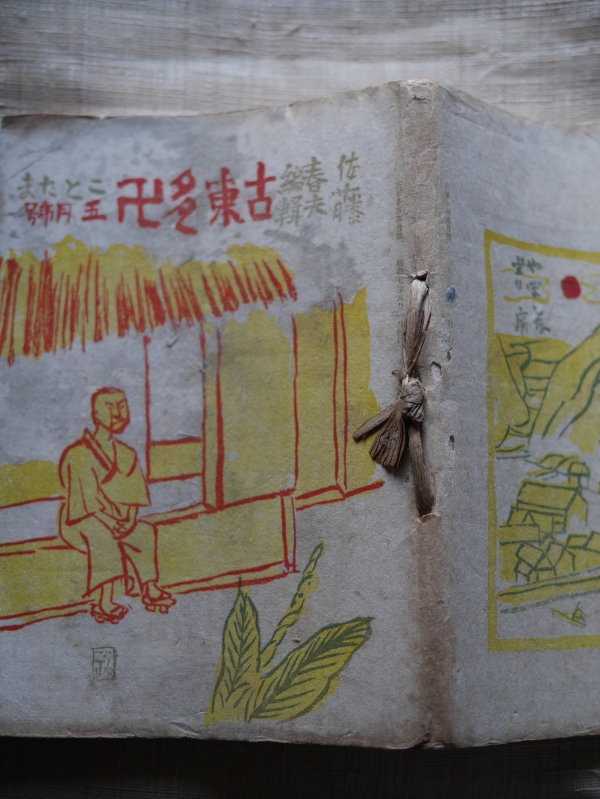 佐藤
春夫
編輯
古東多卍
ことたま
五月號